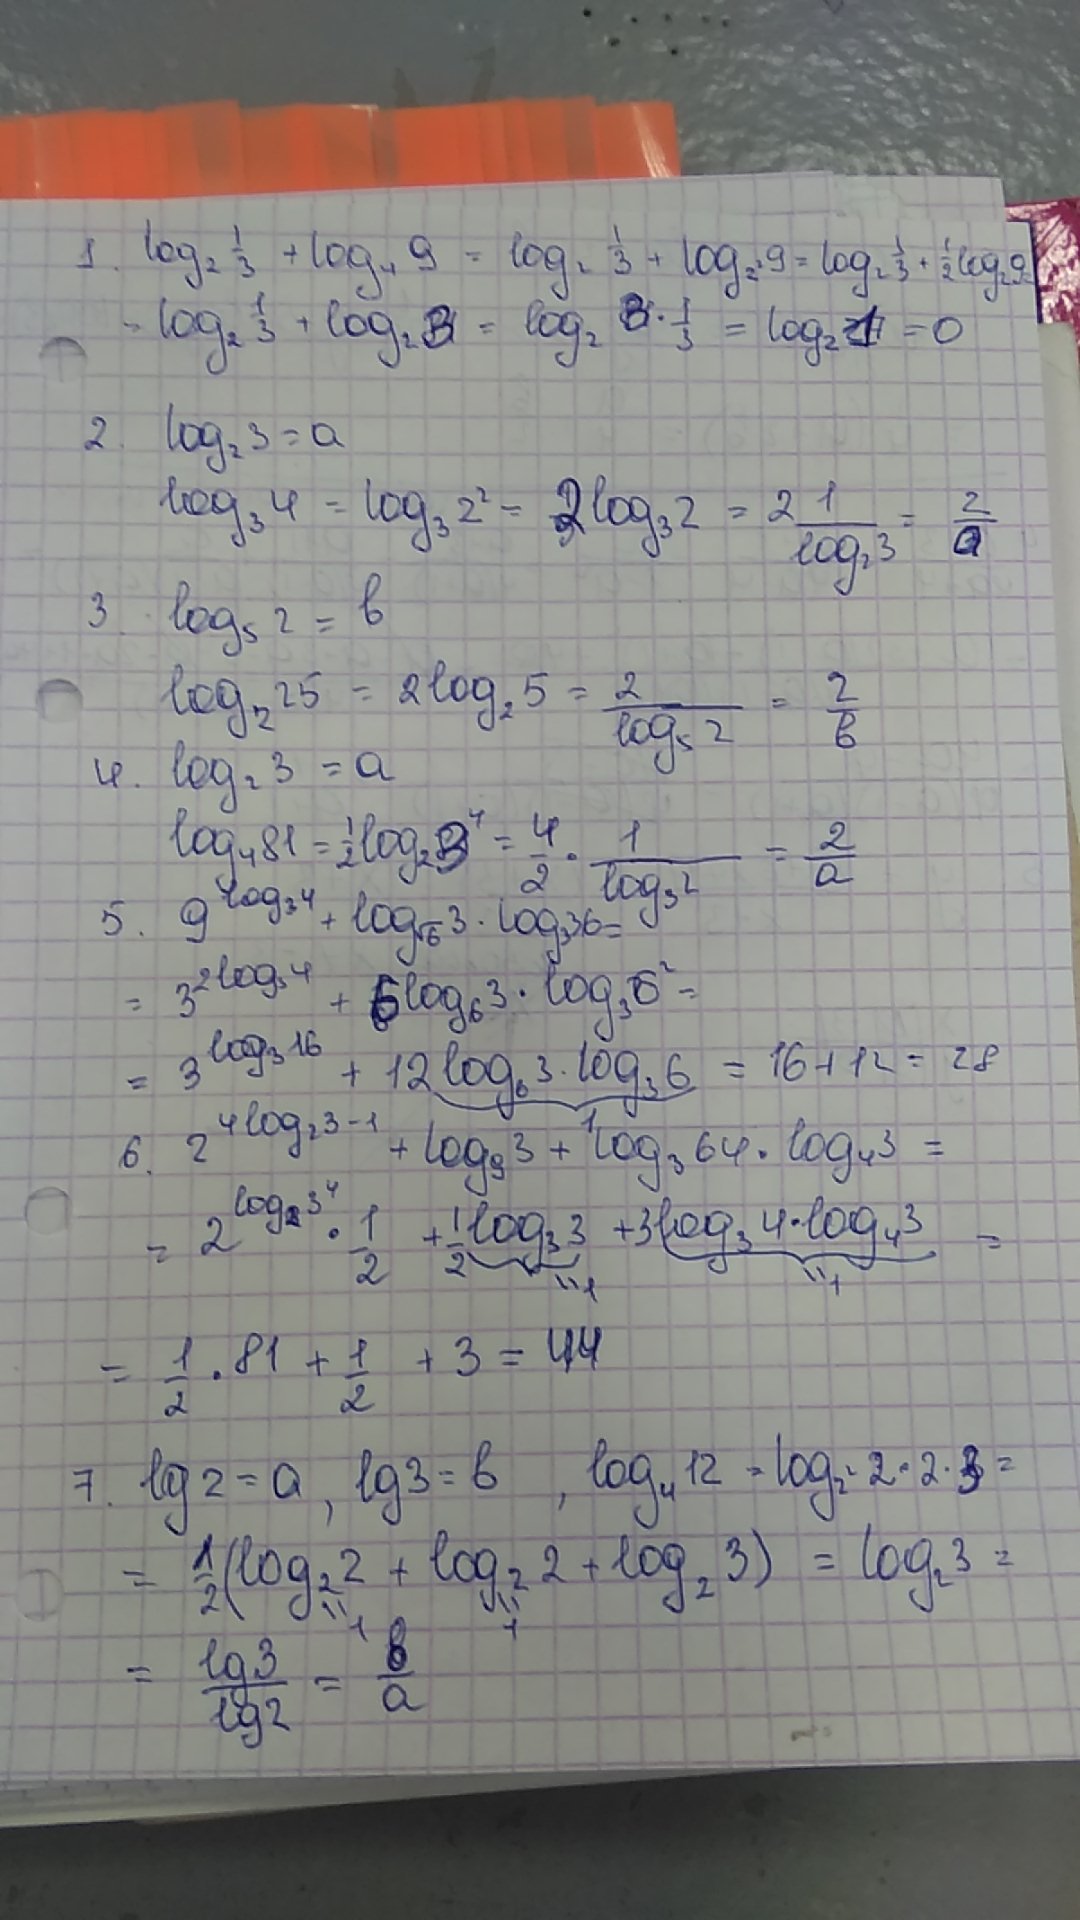 1. log₂ 1/3 + log₄ 9 = log₂ 1/3 + log₂² 9 = log₂ 1/3 + 1/2 log₂ 9
= log₂ 1/3 + log₂ 3 = log₂ 3 · 1/3 = log₂ 1 = 0
2. log₂ 3 = a
log₃ 4 = log₃ 2² = 2 log₃ 2 = 2 1/(log₂ 3) = 2/a
3. log₅ 2 = b
log₂ 25 = 2 log₂ 5 = 2/(log₅ 2) = 2/b
4. log₂ 3 = a
log₄ 81 = 1/2 log₂ 3⁴ = 4/2 · 1/(log₃ 2) = 2/a
5. 9^(log₃ 4) + log_√6 3 · log₃ 36 =
= 3^(2 log₃ 4) + 6 log₆ 3 · log₃ 6² =
= 3^(log₃ 16) + 12 log₆ 3 · log₃ 6 = 16 + 12 = 28
1
6. 2^(4 log₂ 3 - 1) + log₉ 3 + log₃ 64 · log₄ 3 =
= 2^(log₂ 3⁴) · 1/2 + 1/2 log₃ 3 + 3 log₃ 4 · log₄ 3 =
"1 "1
= 1/2 · 81 + 1/2 + 3 = 44
7. lg 2 = a, lg 3 = b, log₄ 12 = log₂² 2 · 2 · 3 =
= 1/2 (log₂ 2 + log₂ 2 + log₂ 3) = log₂ 3 =
"1 "1
= lg 3/lg 2 = b/a